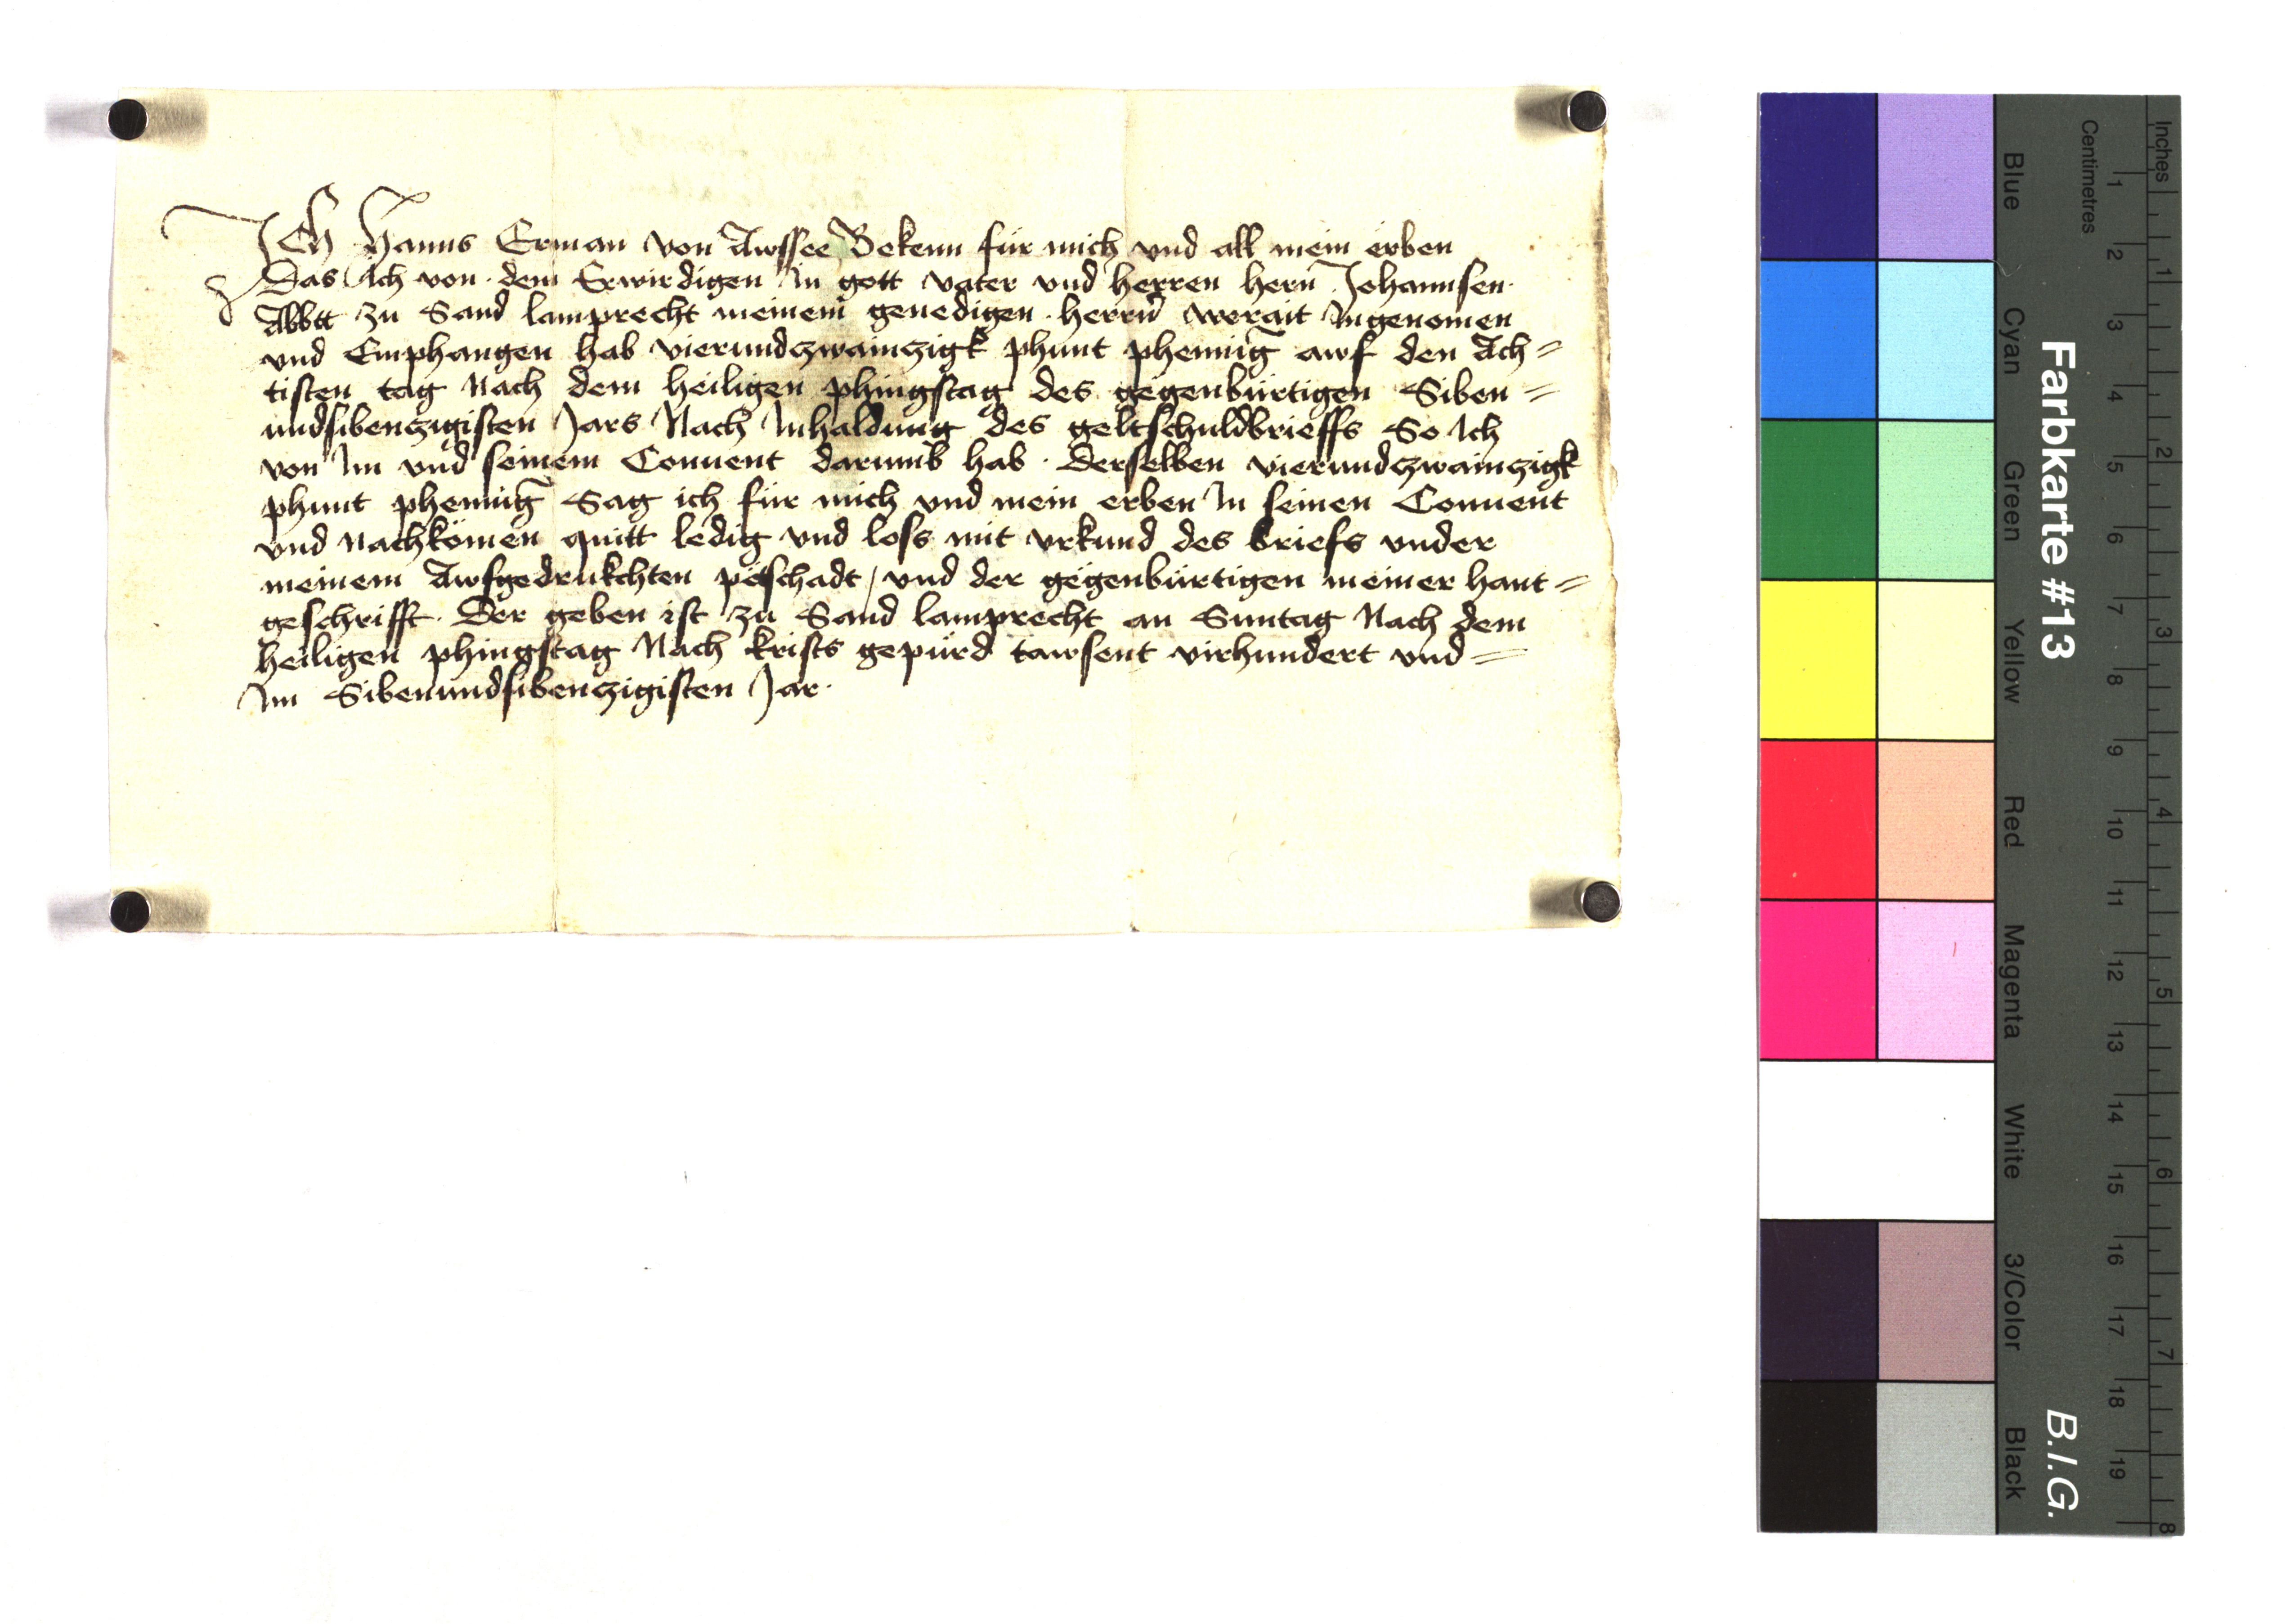 Ich Hanns Erman von Awssee Bekenn für mich vnd all mein erben
Das Ich von dem Erwirdigen In gott vater vnd herren hern Johannsen
Abbtt zu Sand lamprecht meinem genedigen herrn werait Ingenomen
vnd Emphangen hab vierundzwainczigk phunt phennig awf den Ach=
tisten tag Nach dem heiligen phingstag des gegenbürtigen Siben=
undsibenczigisten Jars Nach Inhaldung des geltschuldbrieffs So Ich
von Im vnd seinem Conuent darumb hab. Derselben vierundzwainczigk
phunt phennig Sag ich für mich vnd mein erben In seinen Conuent
vnd nachkömen quitt ledig vnd loss mit vrkund des briefs vnder
meinem Awfgedrukchten petschadt / vnd der gegenbürtigen meiner hant=
geschrifft. Der geben ist zu Sand lamprecht an Suntag Nach dem
heiligen phingstag Nach krists gepürd tawsent virhundert vnd=
Im Sibenundsibenczigisten Jar.
Farbkarte #13
B.I.G.
Inches
Centimetres
Blue
Cyan
Green
Yellow
Red
Magenta
White
3/Color
Black
1 2 3 4 5 6 7 8 9 10 11 12 13 14 15 16 17 18 19
1 2 3 4 5 6 7 8